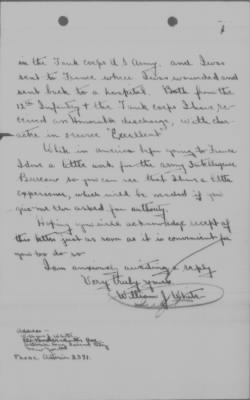 in the Tank Corps U S Army. and I was
sent to France where I was wounded and
sent back to a hospital. Both from the
12th Infantry & the Tank Corps I have re-
ceived an Honorable discharge, with char-
acter in service "Excellent"
While in America before going to France
I done a little work for the Army Intelligence
Bureau so you can see that I have a little
experience, which will be needed if you
give me the asked for authority.
Hoping you will acknowledge receipt of
this letter just as soon as it is convenient for
you to do so
I am anxiously awaiting a reply
Very truly yours
William J. White
Address -
William J. White
Long Island City
New York
Phone Astoria 2391.